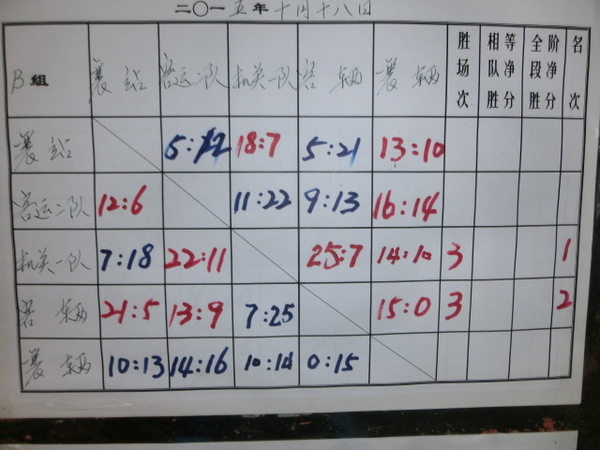 二〇一五年十月十八日
B组 襄站 客运二队 机关一队 客辆 襄辆 胜场次 相等队净胜分 全阶段净胜分 名次
襄站 5:12 18:7 5:21 13:10
客运二队 12:6 11:22 9:13 16:14
机关一队 7:18 22:11 25:7 14:10 3 1
客辆 21:5 13:9 7:25 15:0 3 2
襄辆 10:13 14:16 10:14 0:15